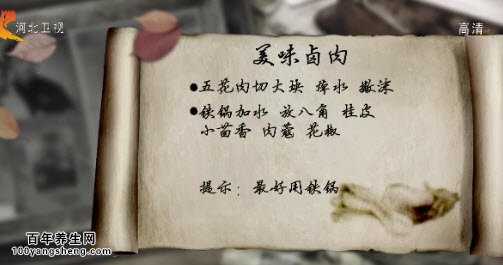 河北卫视
高清
美味卤肉
●五花肉切大块 焯水 撇沫
●铁锅加水 放八角 桂皮
小茴香 肉蔻 花椒
提示：最好用铁锅
百年养生网
100yangsheng.com